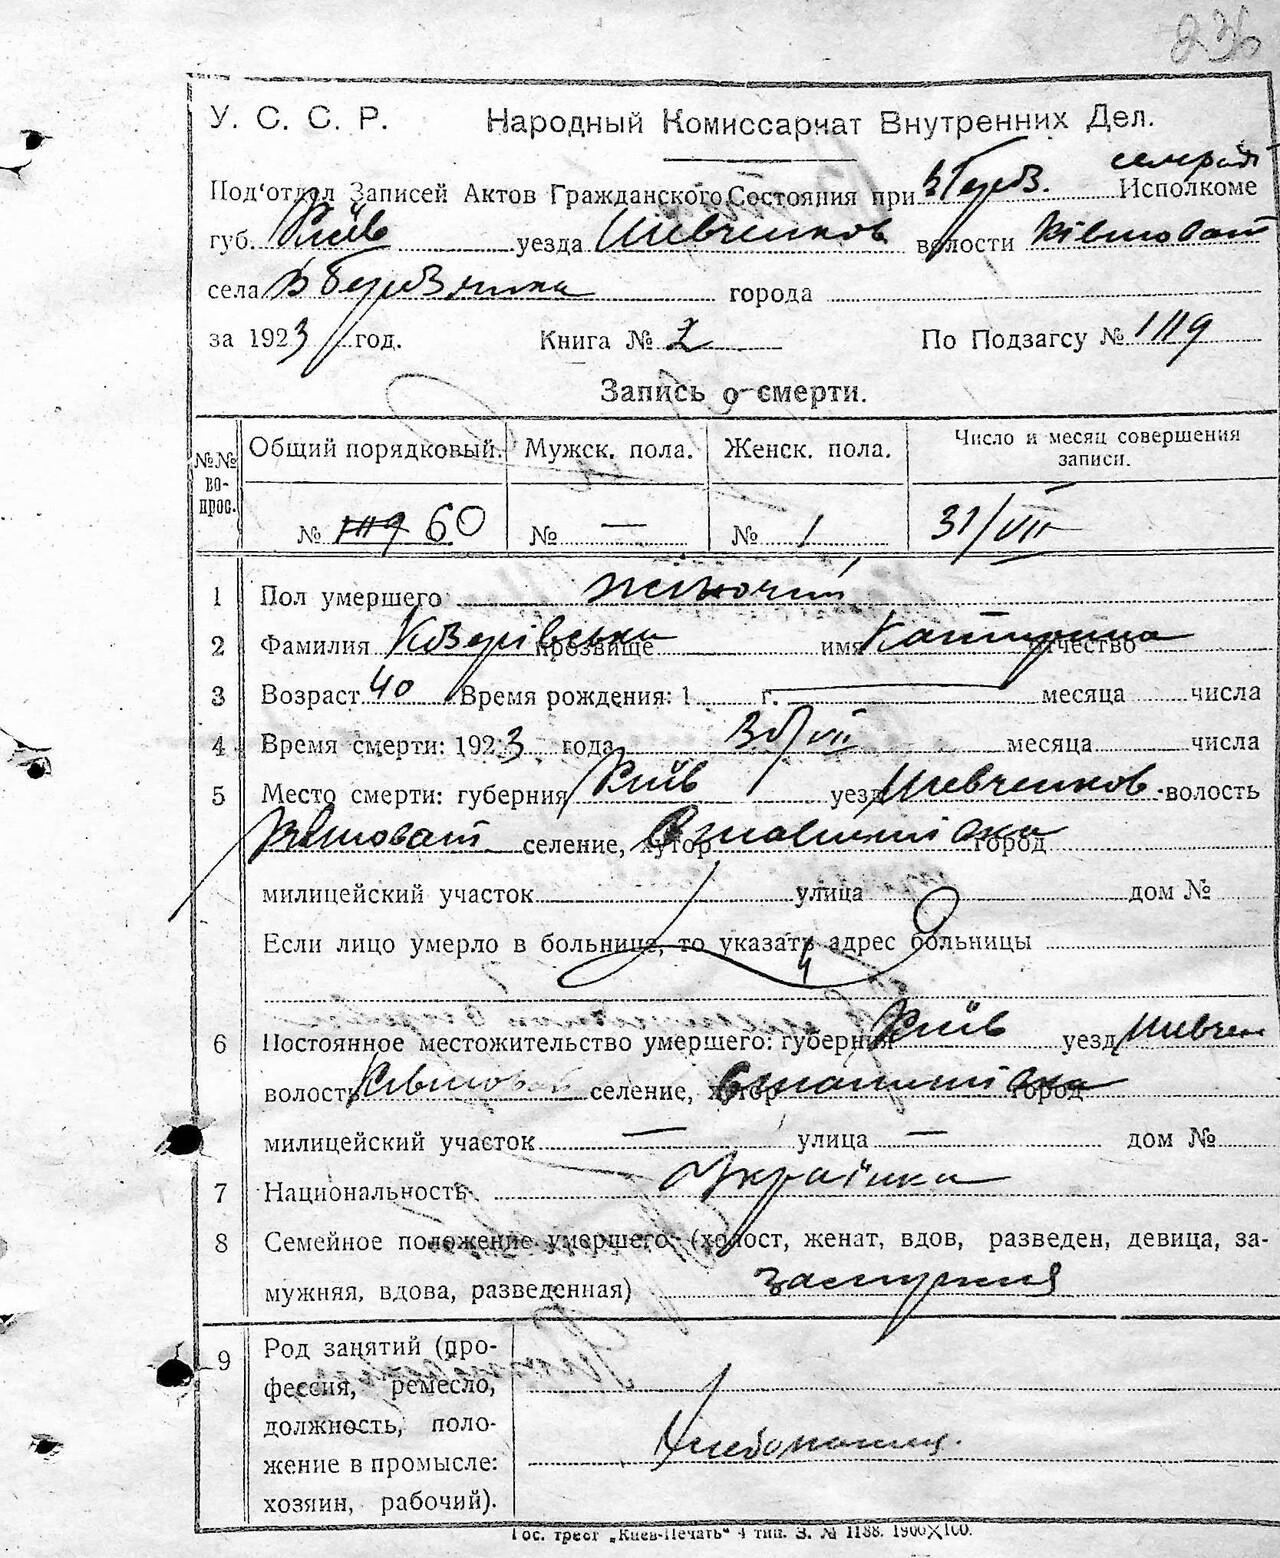 236
У. С. С. Р. Народный Комиссарчат Внутренних Дел.
Под'отдел Записей Актов Гражданского Состояния при В Берез. сельрад Исполкоме
губ. Київ уезда Шевченков волости Ківшоват
села В Березянка города
за 1923 год. Книга № 2 По Подзагсу № 1119
Запись о смерти.
№№ вопрос. Общий порядковый. Мужск. пола. Женск. пола. Число и месяц совершения записи.
№ 1119 60 № — № 1 31/VII
1 Пол умершего жіночий
2 Фамилия прозвище имя Катерина отчество
3 Возраст 40 Время рождения: 1 г. месяца числа
4 Время смерти: 1923 года 30/VII месяца числа
5 Место смерти: губерния Київ уезд Шевченков волость
Ківшоват селение, хутор город
милицейский участок улица дом №
Если лицо умерло в больнице, то указать адрес больницы
6 Постоянное местожительство умершего: губерния Київ уезд Шевчен
волость Ківшоват селение, хутор город
милицейский участок — улица — дом №
7 Национальность Українка
8 Семейное положение умершего: (холост, женат, вдов, разведен, девица, за-
мужняя, вдова, разведенная) замужня
9 Род занятий (про-
фессия, ремесло,
должность, поло- Хлебопашец.
жение в промысле:
хозяин, рабочий).
Гос. трест „Киев-Печать" 4 тип. З. № 1188. 1900×100.